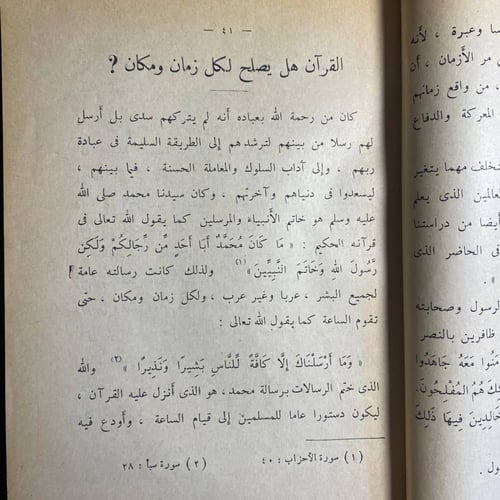 — ٤١ —
القرآن هل يصلح لكل زمان ومكان ؟
كان من رحمة الله بعباده أنه لم يتركهم سدى بل أرسل
لهم رسلا من بينهم لترشدهم إلى الطريقة السليمة فى عبادة
ربهم ، وإلى آداب السلوك والمعاملة الحسنة ، فيما بينهم ،
ليسعدوا فى دنياهم وآخرتهم ، وكان سيدنا محمد صلى الله
عليه وسلم هو خاتم الأنبياء والمرسلين كما يقول الله تعالى فى
قرآنه الحكيم : « مَا كَانَ مُحَمَّدٌ أَبَا أَحَدٍ مِّن رِّجَالِكُمْ وَلَكِن
رَّسُولَ اللهِ وَخَاتَمَ النَّبِيِّينَ»(١) ولذلك كانت رسالته عامة
لجميع البشر ، عربا وغير عرب ، ولكل زمان ومكان ، حتّى
تقوم الساعة كما يقول الله تعالى :
« وَمَا أَرْسَلْنَاكَ إِلَّا كَافَّةً لِّلنَّاسِ بَشِيرًا وَنَذِيرًا »(٢) والله
الذى ختم الرسالات برسالة محمد، هو الذى أنزل عليه القرآن ،
ليكون دستورا عاما للمسلمين إلى قيام الساعة ، وأودع فيه
(١) سورة الأحزاب : ٤٠ (٢) سورة سبأ : ٢٨
وعبرة ، لأنه
مر الأزمان ، أن
، من واقع زمانهم
المعركة والدفاع
تخلف مهما يتغير
العالمين الذى يعلم
أيضا من دراستنا
فى الحاضر الذى
» .
الرسول وصحابته
ظافرين بالنصر
مَعَهُ جَاهَدُوا
هُمُ الْمُفْلِحُونَ.
خَالِدِينَ فِيهَا ذَلِكَ